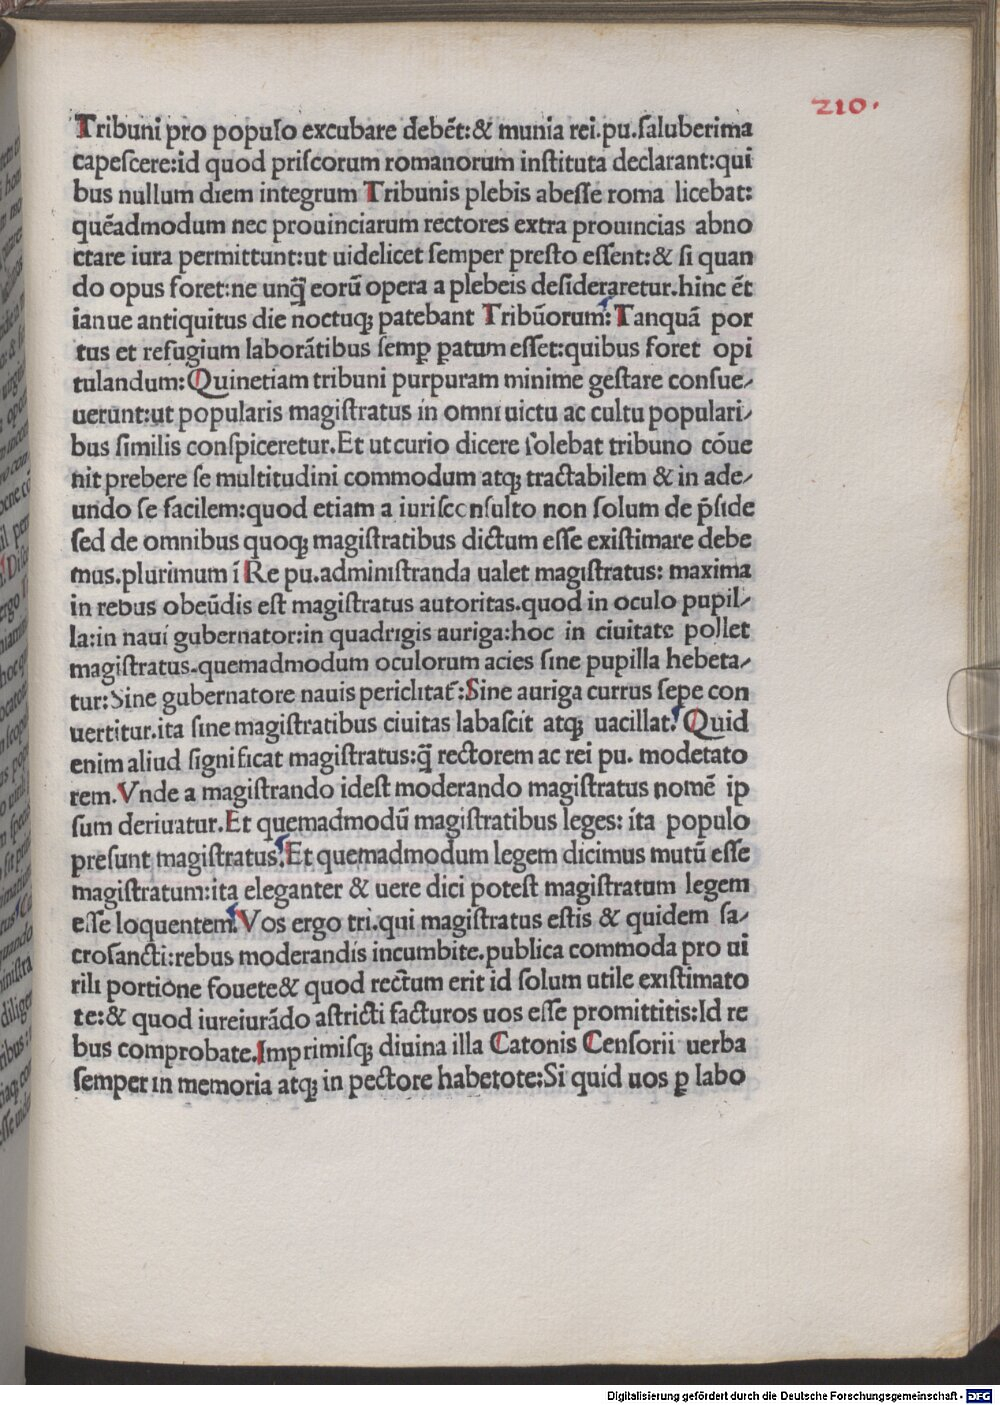 210.
Tribuni pro populo excubare debēt:& munia rei.pu.ſaluberima
capeſcere:id quod priſcorum romanorum inſtituta declarant:qui
bus nullum diem integrum Tribunis plebis abeſſe roma licebat:
quēadmodum nec prouinciarum rectores extra prouincias abno
ctare iura permittunt:ut uidelicet ſemper preſto eſſent:& ſi quan
do opus foret:ne unq̃ eorū opera a plebeis deſideraretur.hinc ēt
ianue antiquitus die noctuqꝫ patebant Tribūorum: Tanquā por
tus et refugium laborātibus ſemꝑ ꝑatum eſſet:quibus foret opi
tulandum: Quinetiam tribuni purpuram minime geſtare conſue⸗
uerunt:ut popularis magiſtratus in omni uictu ac cultu populari⸗
bus ſimilis conſpiceretur.Et ut curio dicere ſolebat tribuno cōue
nit prebere ſe multitudini commodum atqꝫ tractabilem & in ade⸗
undo ſe facilem:quod etiam a iuriſconſulto non ſolum de p̄ſide
ſed de omnibus quoqꝫ magiſtratibus dictum eſſe exiſtimare debe
mus.plurimum ī Re pu.adminiſtranda ualet magiſtratus: maxima
in rebus obeūdis eſt magiſtratus autoritas.quod in oculo pupil⸗
la:in naui gubernator:in quadrigis auriga:hoc in ciuitate pollet
magiſtratus.quemadmodum oculorum acies ſine pupilla hebeta⸗
tur:Sine gubernatore nauis periclitat̄:Sine auriga currus ſepe con
uertitur.ita ſine magiſtratibus ciuitas labaſcit atqꝫ uacillat. Quid
enim aliud ſignificat magiſtratus:q̃ rectorem ac rei pu. modetato
rem.Vnde a magiſtrando ideſt moderando magiſtratus nomē ip
ſum deriuatur.Et quemadmodū magiſtratibus leges: ita populo
preſunt magiſtratus.Et quemadmodum legem dicimus mutū eſſe
magiſtratum:ita eleganter & uere dici poteſt magiſtratum legem
eſſe loquentem.Vos ergo tri.qui magiſtratus eſtis & quidem ſa⸗
croſancti:rebus moderandis incumbite.publica commoda pro ui
rili portione fouete& quod rectum erit id ſolum utile exiſtimato
te:& quod iureiurādo aſtricti facturos uos eſſe promittitis:Id re
bus comprobate.Imprimiſqꝫ diuina illa Catonis Cenſorii uerba
ſemper in memoria atqꝫ in pectore habetote:Si quid uos ꝑ labo
Digitalisierung gefördert durch die Deutsche Forschungsgemeinschaft - DFG